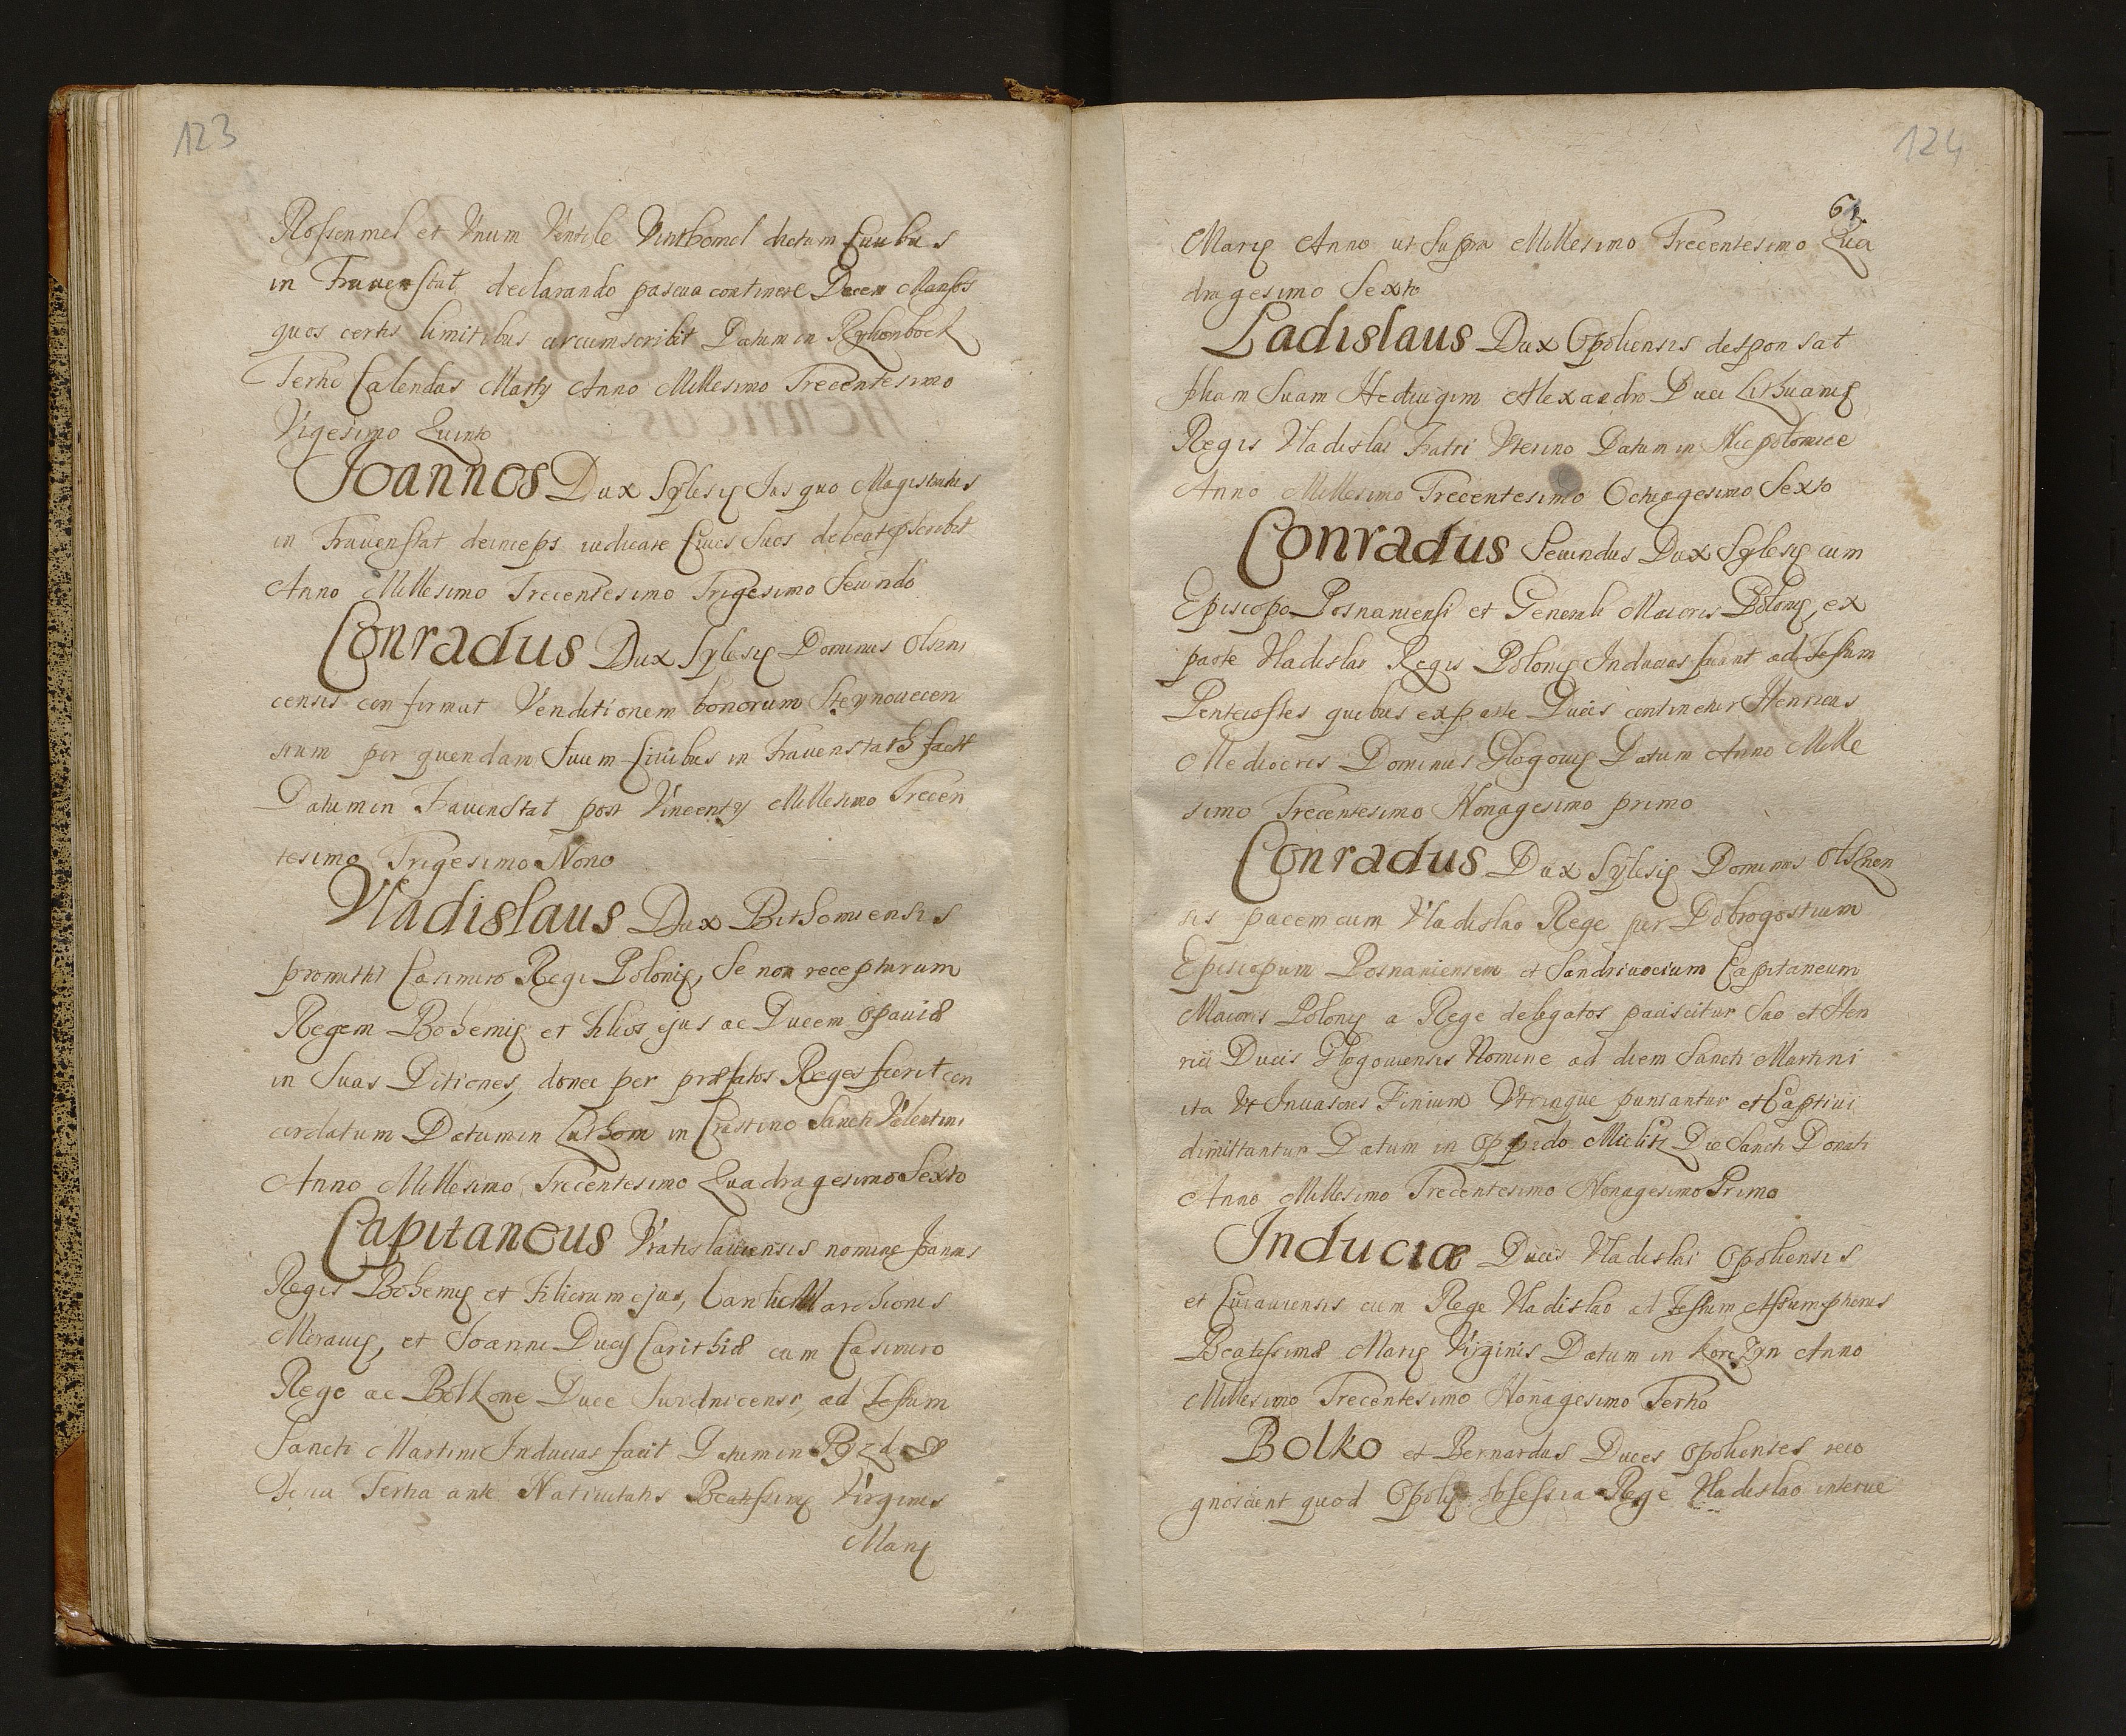 123
Rossenmel et Vnum Ventile Vinthomel dictum Ciuibus
in Frauenstat declarando pascua continere Decem Mansos
quos certis limitibus circumscribit Datum in Rychonbock
Tertio Calendas Martÿ Anno Millesimo Trecentesimo
Vigesimo Quinto
Joannes Dux Sÿlesię Jus quo Magistratus
in Frauenstat deinceps iudicare Ciues Suos debeat pscribit
Anno Millesimo Trecentesimo Trigesimo Secundo
Conradus Dux Sylesię Dominus Olsni
censis confirmat Venditionem bonorum Steynouecen
sium per quendam Suum Ciuibus in Frauenstath fact
Datum in Frauenstat post Vincentÿ Millesimo Trecen
tesimo Trigesimo Nono
Vladislaus Dux Bithomiensis
promittit Casimiro Regi Polonię, Se non recepturum
Regem Bohemię et filios ejus ac Ducem Opauiæ
in Suas Ditiones, donec per præfatos Reges fuerit con
cordatum Datum in Luthom in Crastino Sancti Valentini
Anno Millesimo Trecentesimo Quadragesimo Sexto
Capitaneus Vratislauiensis nomine Joannis
Regis Bohemię et Filiorum ejus, Caroli Marchionis
Morauię, et Joanni Ducis Carithiæ cum Casimiro
Rege ac Bolkone Duce Suidnicensi, ad Festum
Sancti Martini Inducias facit Datum in
Feria Tertia ante Natiuitatis Beatissimę Virginis
Marię
124
61.
Marię Anno ut Supra Millesimo Trecentesimo Qua
dragesimo Sexto
Ladislaus Dux Opoliensis desponsat
filiam Suam Hedwigim Alexandro Duci Lithuanię
Regis Vladislai Fratri Vterino Datum in Niepolomice
Anno Millesimo Trecentesimo Octuagesimo Sexto
Conradus Secundus Dux Sÿlesię cum
Episcopo Posnaniensi et Generali Maioris Polonię, ex
parte Vladislai Regis Polonię Inducias faciunt ad Festum
Pentecostes quibus ex parte Ducis continetur Henricus
Mediocris Dominus Glogouię Datum Anno Mille
simo Trecentesimo Nonagesimo primo
Conradus Dux Sÿlesię Dominus Olsznen
sis pacem cum Vladislao Rege per Dobrogostium
Episcopum Posnaniensem et Sandriuocium Capitaneum
Maioris Polonię a Rege delegatos paciscitur Suo et Hen
rici Ducis Glogouiensis Nomine ad diem Sancti Martini
ita Vt Inuasores Finium Vtrinque puniantur et Captiui
dimittantur Datum in oppido Mielitz Die Sancti Donati
Anno Millesimo Trecentesimo Nonagesimo Primo
Induciæ Ducis Vladislai Opoliensis
et Cuiauiensis cum Rege Vladislao ad Festum Assumptionis
Beatissimæ Marię Virginis Datum in Korczyn Anno
Millesimo Trecentesimo Nonagesimo Tertio
Bolko et Bernardus Duces Opolienses reco
gnoscunt quod Opolię obsessia Rege Vladislao interue